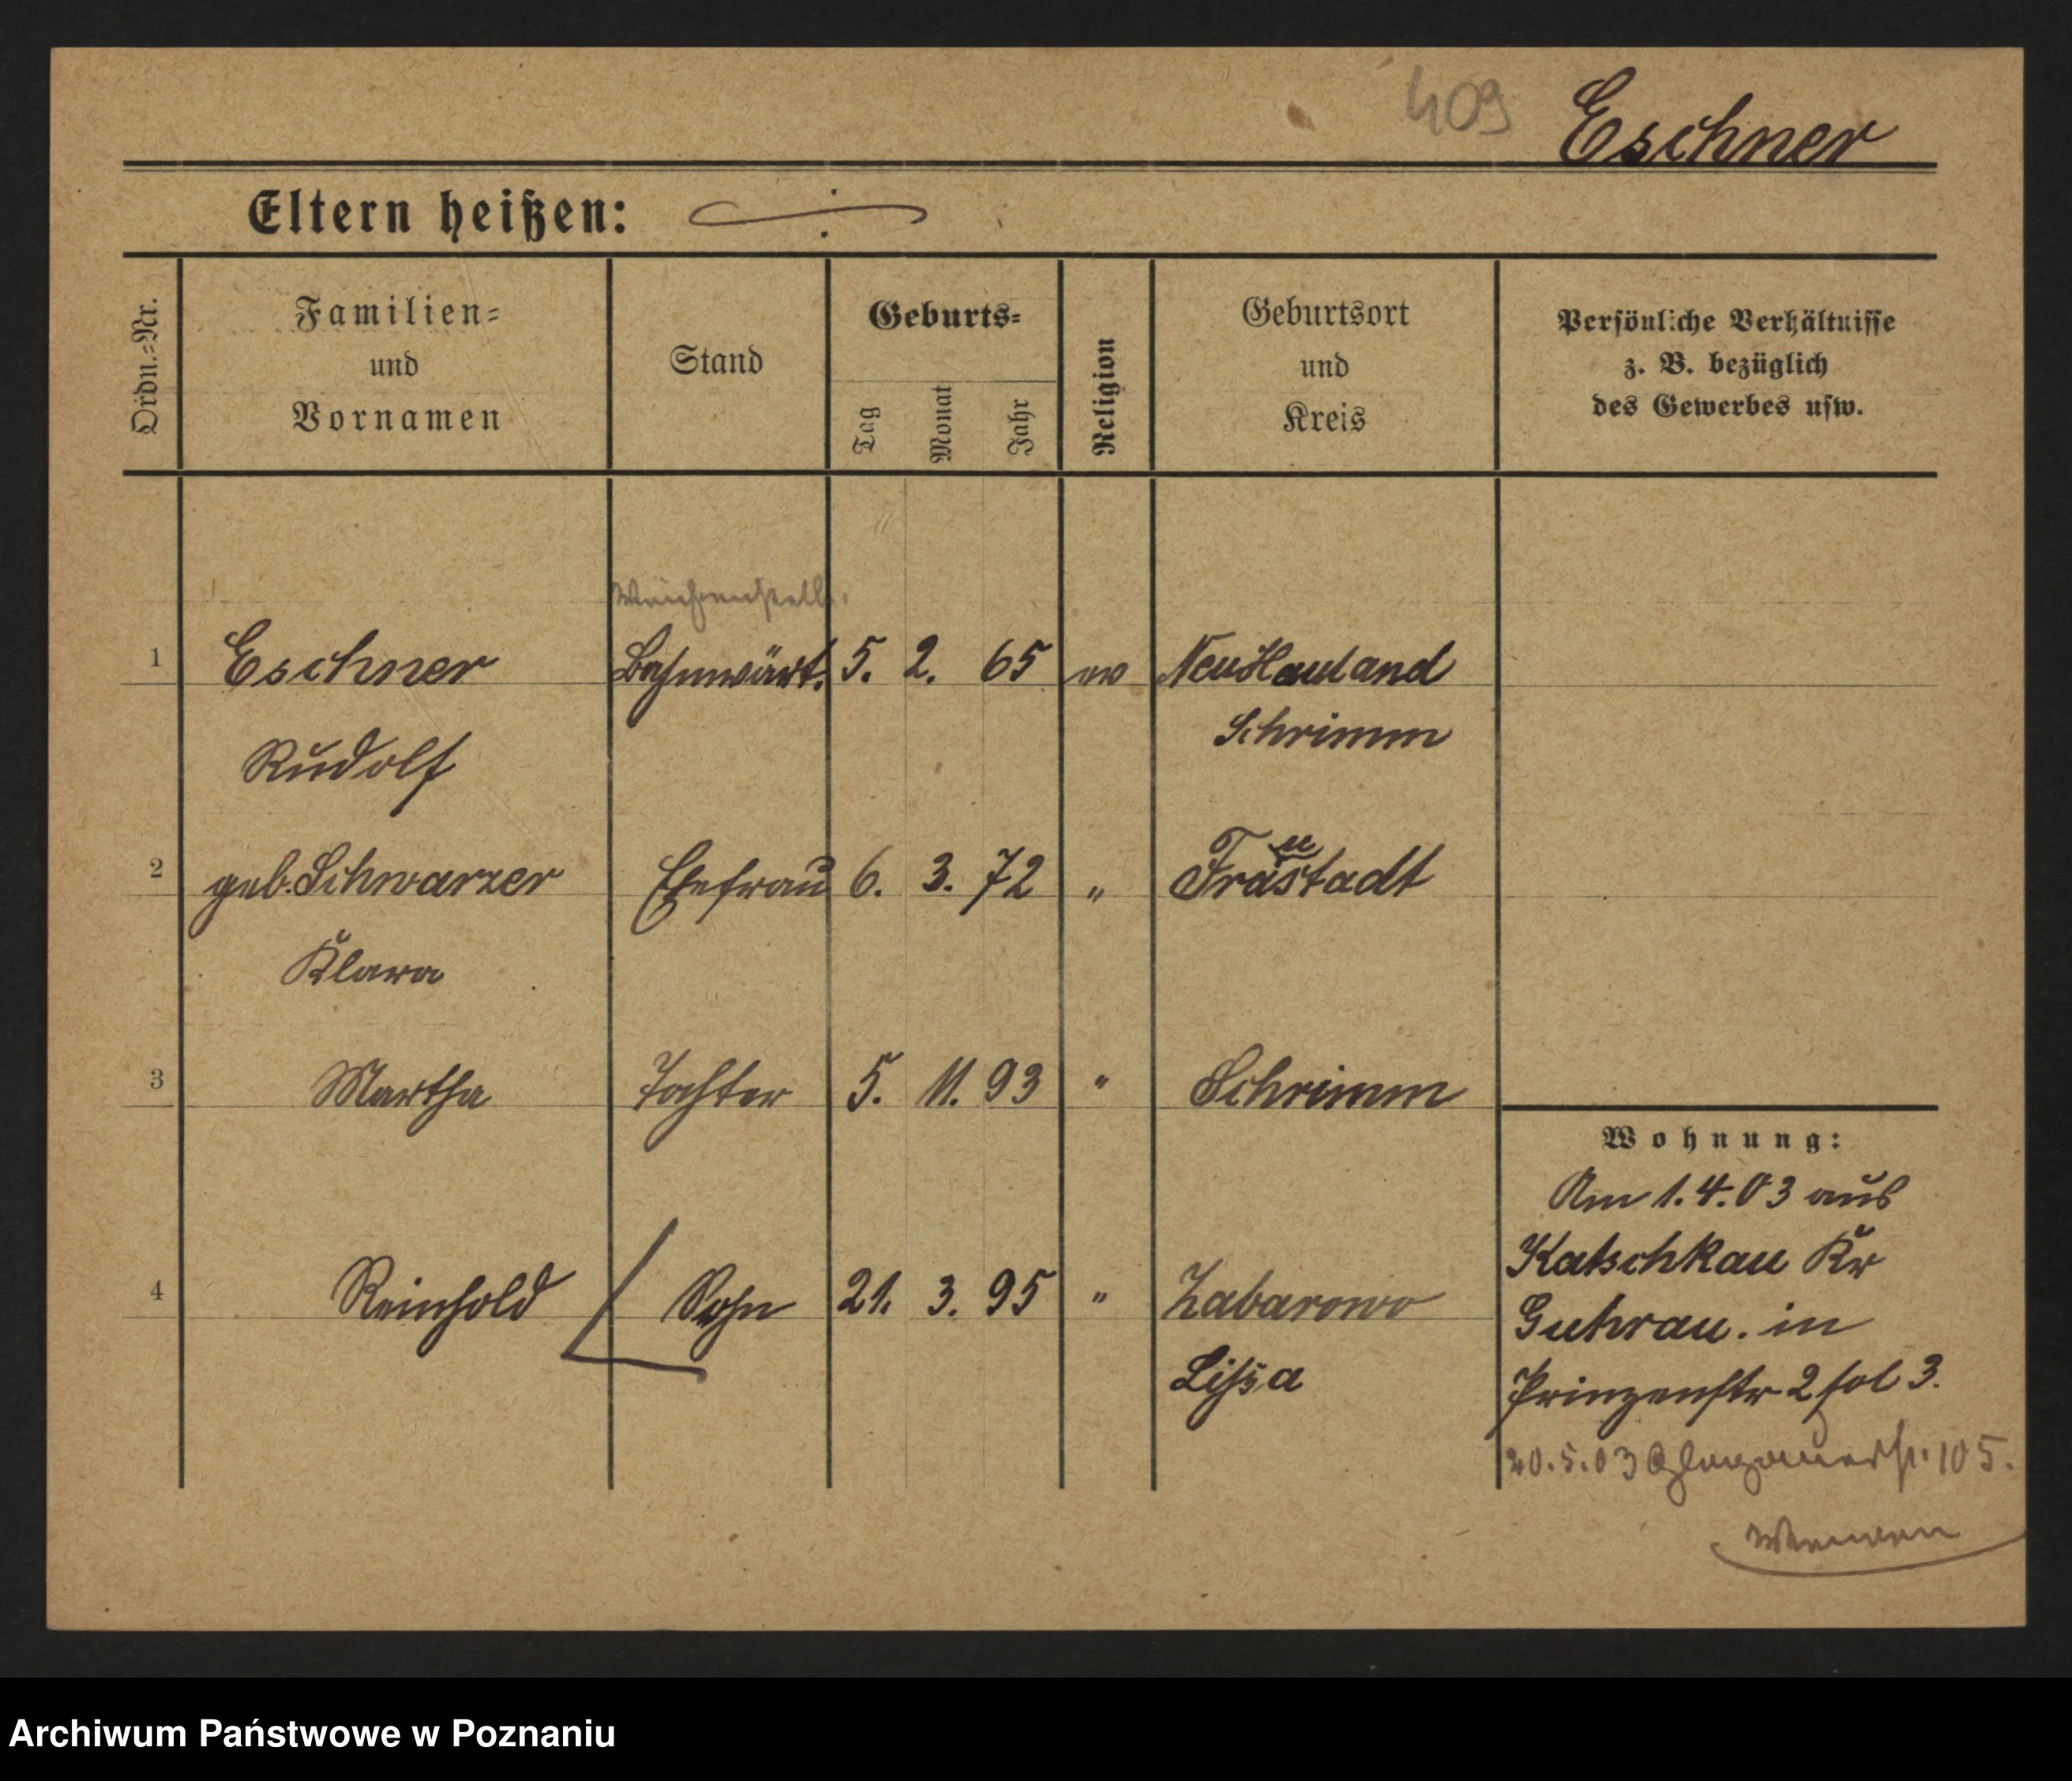 409 Eschner
Eltern heißen:
Ordn.=Nr.
Familien=
und
Vornamen
Stand
Geburts=
Tag
Monat
Jahr
Religion
Geburtsort
und
Kreis
Persönliche Verhältnisse
z. B. bezüglich
des Gewerbes usw.
Weichenstell.
1 Eschner Bahnwärt. 5. 2. 65 ev NeuHauland
Rudolf Schrimm
2 geb. Schwarzer Ehefrau 6. 3. 72 " Fraustadt
Klara
3 Martha Tochter 5. 11. 93 " Schrimm
4 Reinhold Sohn 21. 3. 95 " Zabarowo
Lissa
Wohnung:
Am 1.4.03 aus
Katschkau Kr
Guhrau. in
Prinzenstr 2 fol 3.
20.5.03 Glogauerstr. 105.
Archiwum Państwowe w Poznaniu